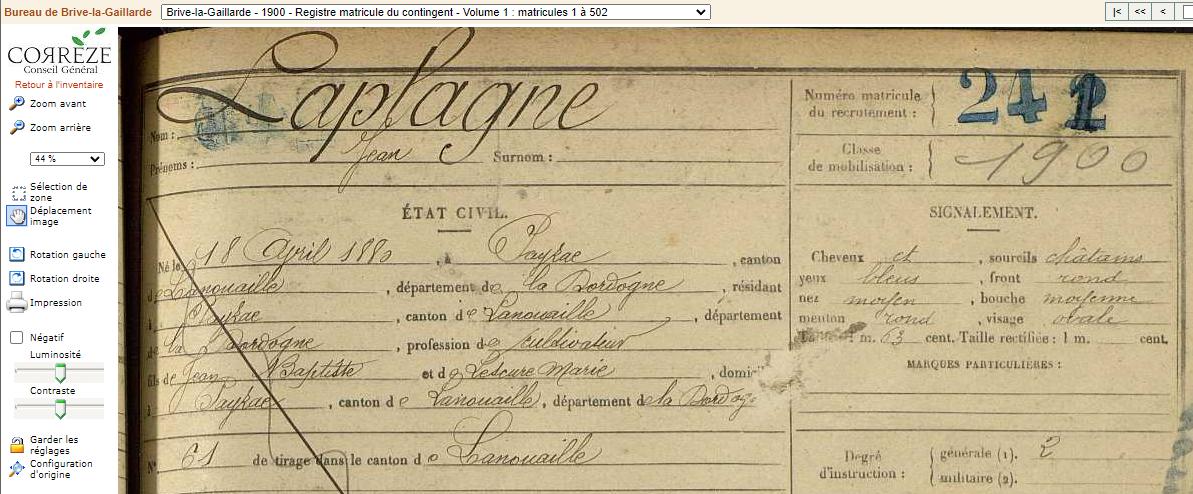 Bureau de Brive-la-Gaillarde
Brive-la-Gaillarde - 1900 - Registre matricule du contingent - Volume 1 : matricules 1 à 502
|< << <
CORRÈZE
Conseil Général
Retour à l'inventaire
Zoom avant
Zoom arrière
44 %
Sélection de zone
Déplacement image
Rotation gauche
Rotation droite
Impression
Négatif
Luminosité
Contraste
Garder les réglages
Configuration d'origine
Nom : Laplagne
Prénoms : Jean Surnom :
Numéro matricule du recrutement : 242
Classe de mobilisation : 1900
ÉTAT CIVIL.
Né le 18 April 1880, à Payzac, canton
de Lanouaille, département de la Dordogne, résidant
à Payzac, canton de Lanouaille, département
de la Dordogne, profession de cultivateur
fils de Jean Baptiste et de Lescure Marie, domici
à Payzac, canton de Lanouaille, département de la Dordog
N° 61 de tirage dans le canton de Lanouaille
SIGNALEMENT.
Cheveux et, sourcils châtains
yeux bleus, front rond
nez moyen, bouche moyenne
menton rond, visage ovale
1 m. 63 cent. Taille rectifiée : 1 m. cent.
MARQUES PARTICULIÈRES :
Degré d'instruction : générale (1). 2
militaire (2).